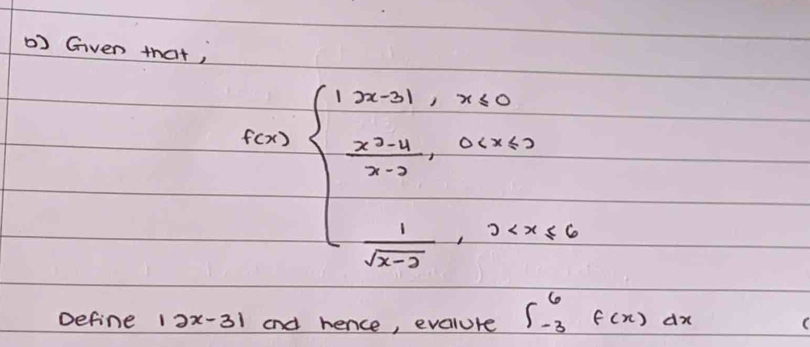 b) Given that,
f(x) { |2x-3| , x ≤ 0
x²-4 / x-2 , 0 < x ≤ 2
1 / √x-2 , 2 < x ≤ 6
Define |2x-3| and hence, evalute ∫₋₃⁶ f(x) dx (